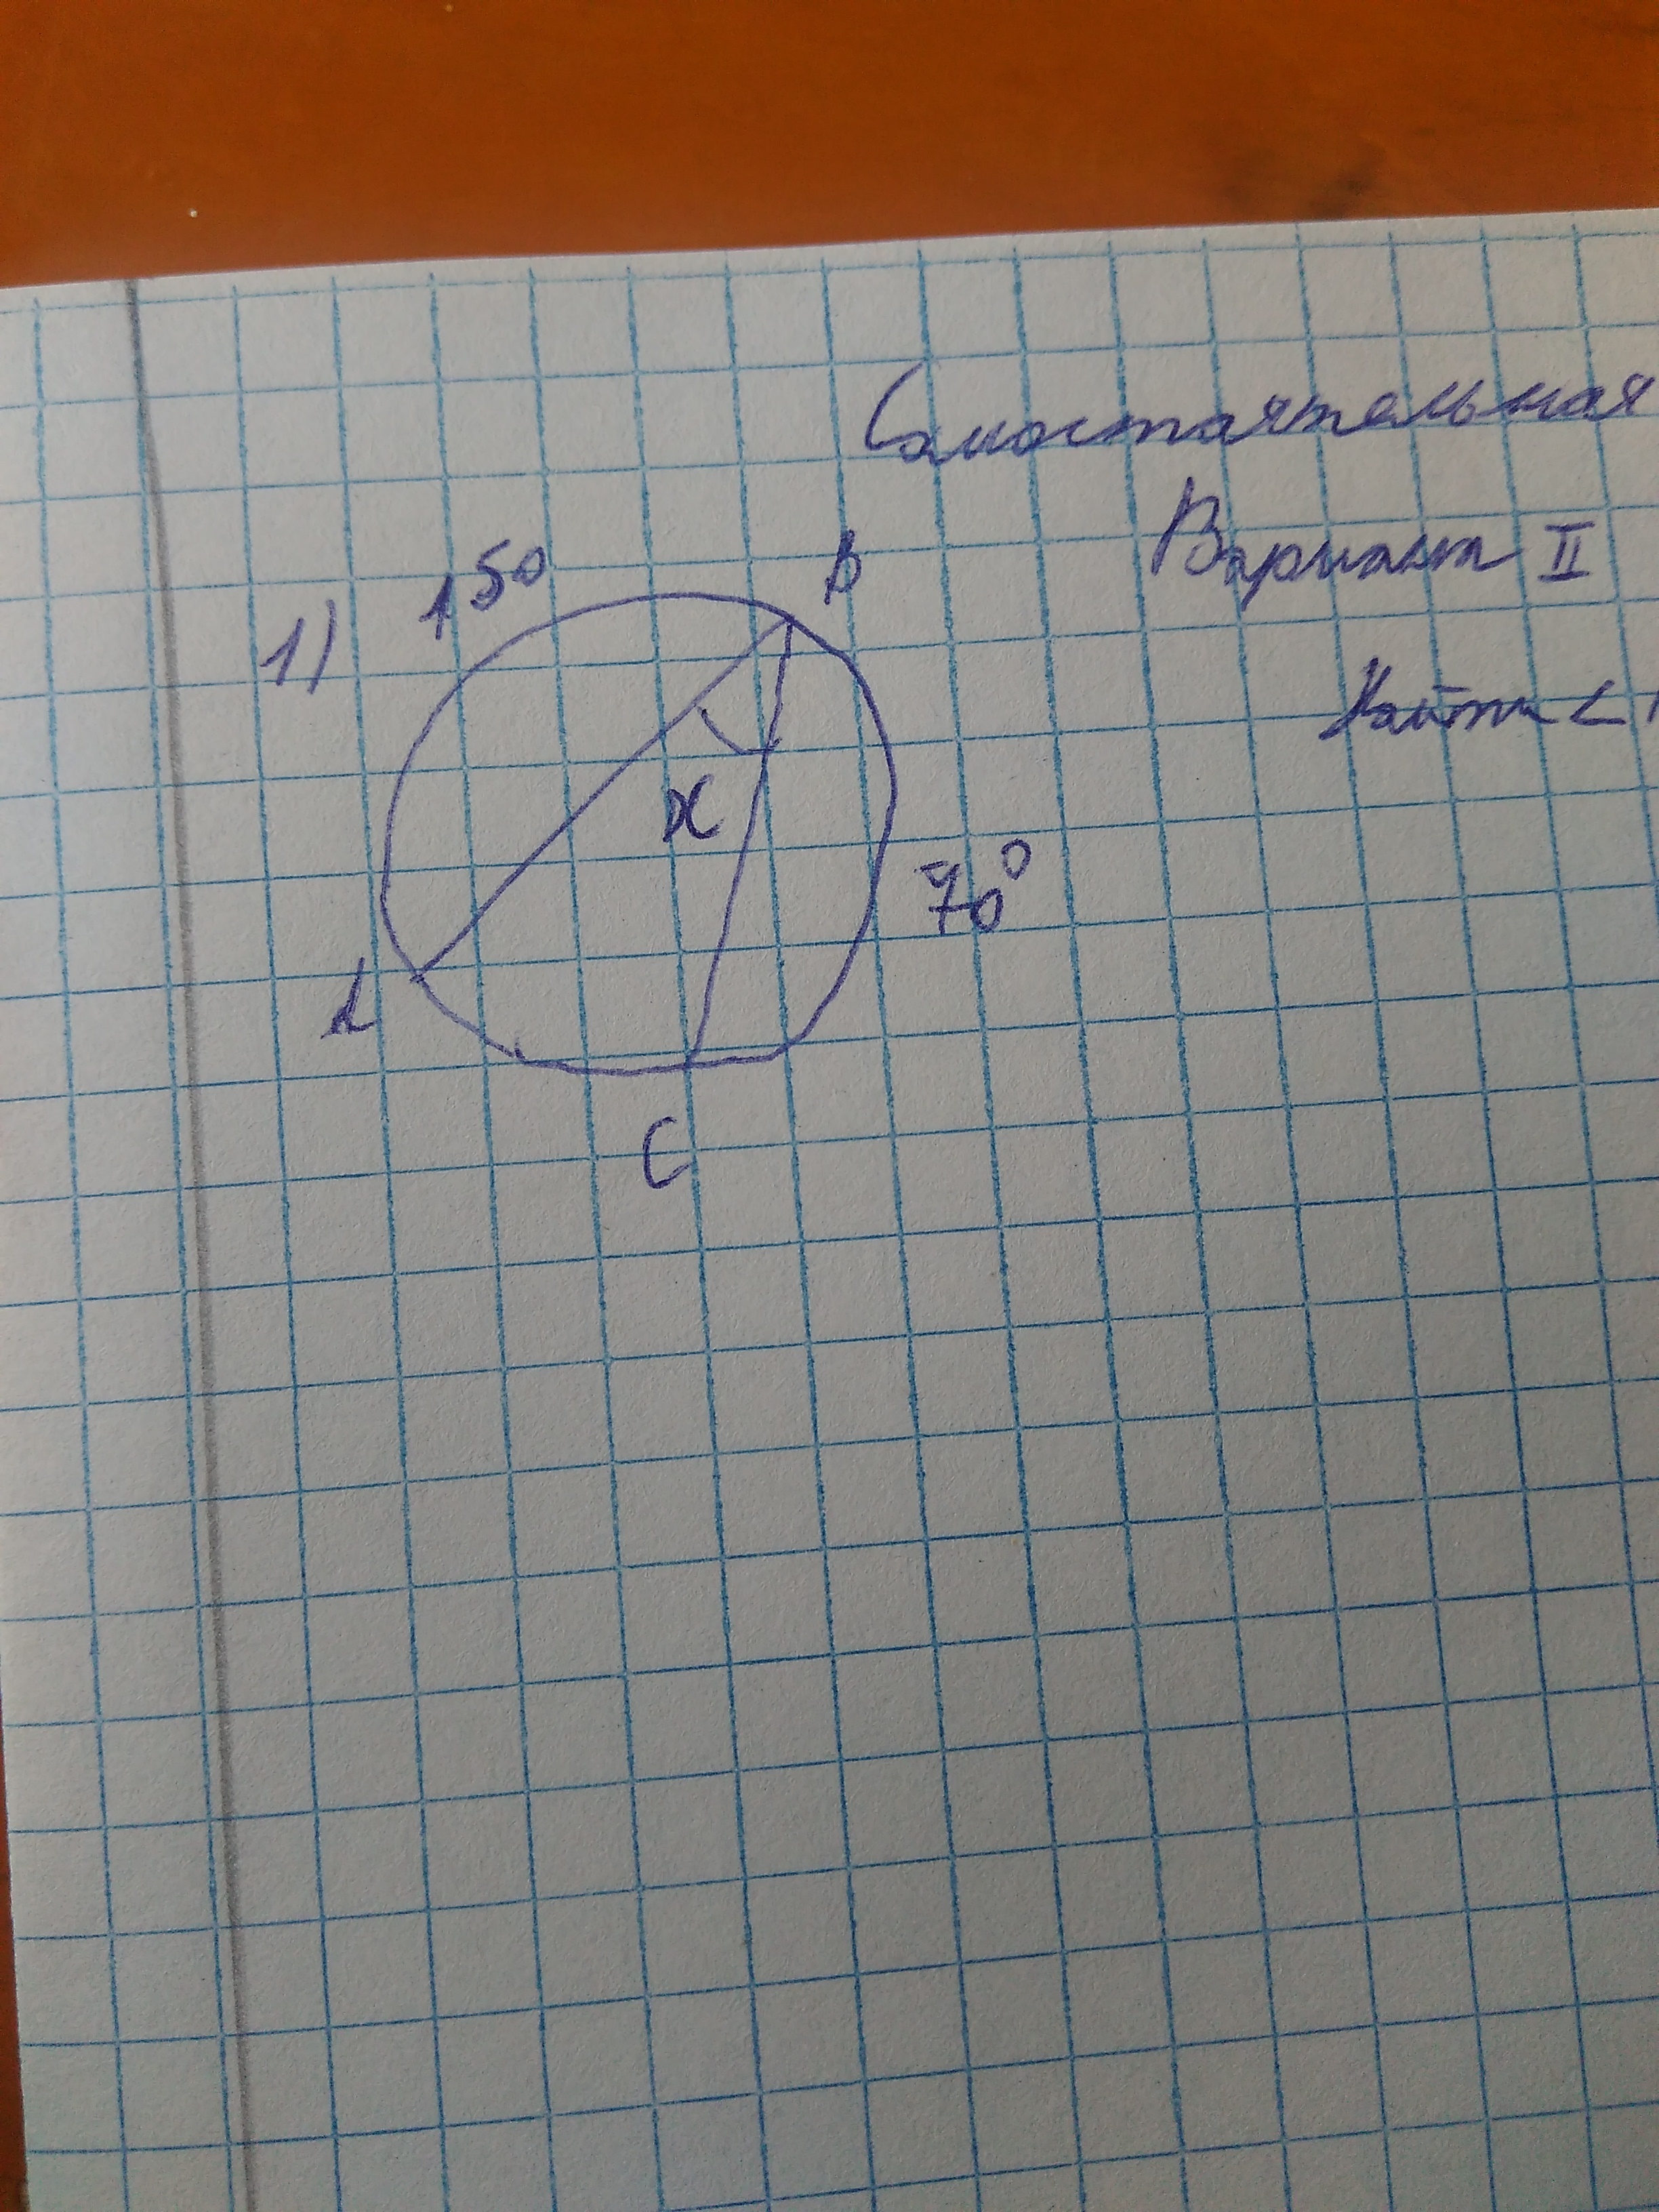 Самостоятельная
Вариант II
1)
150
B
Найти <
x
70°
A
C